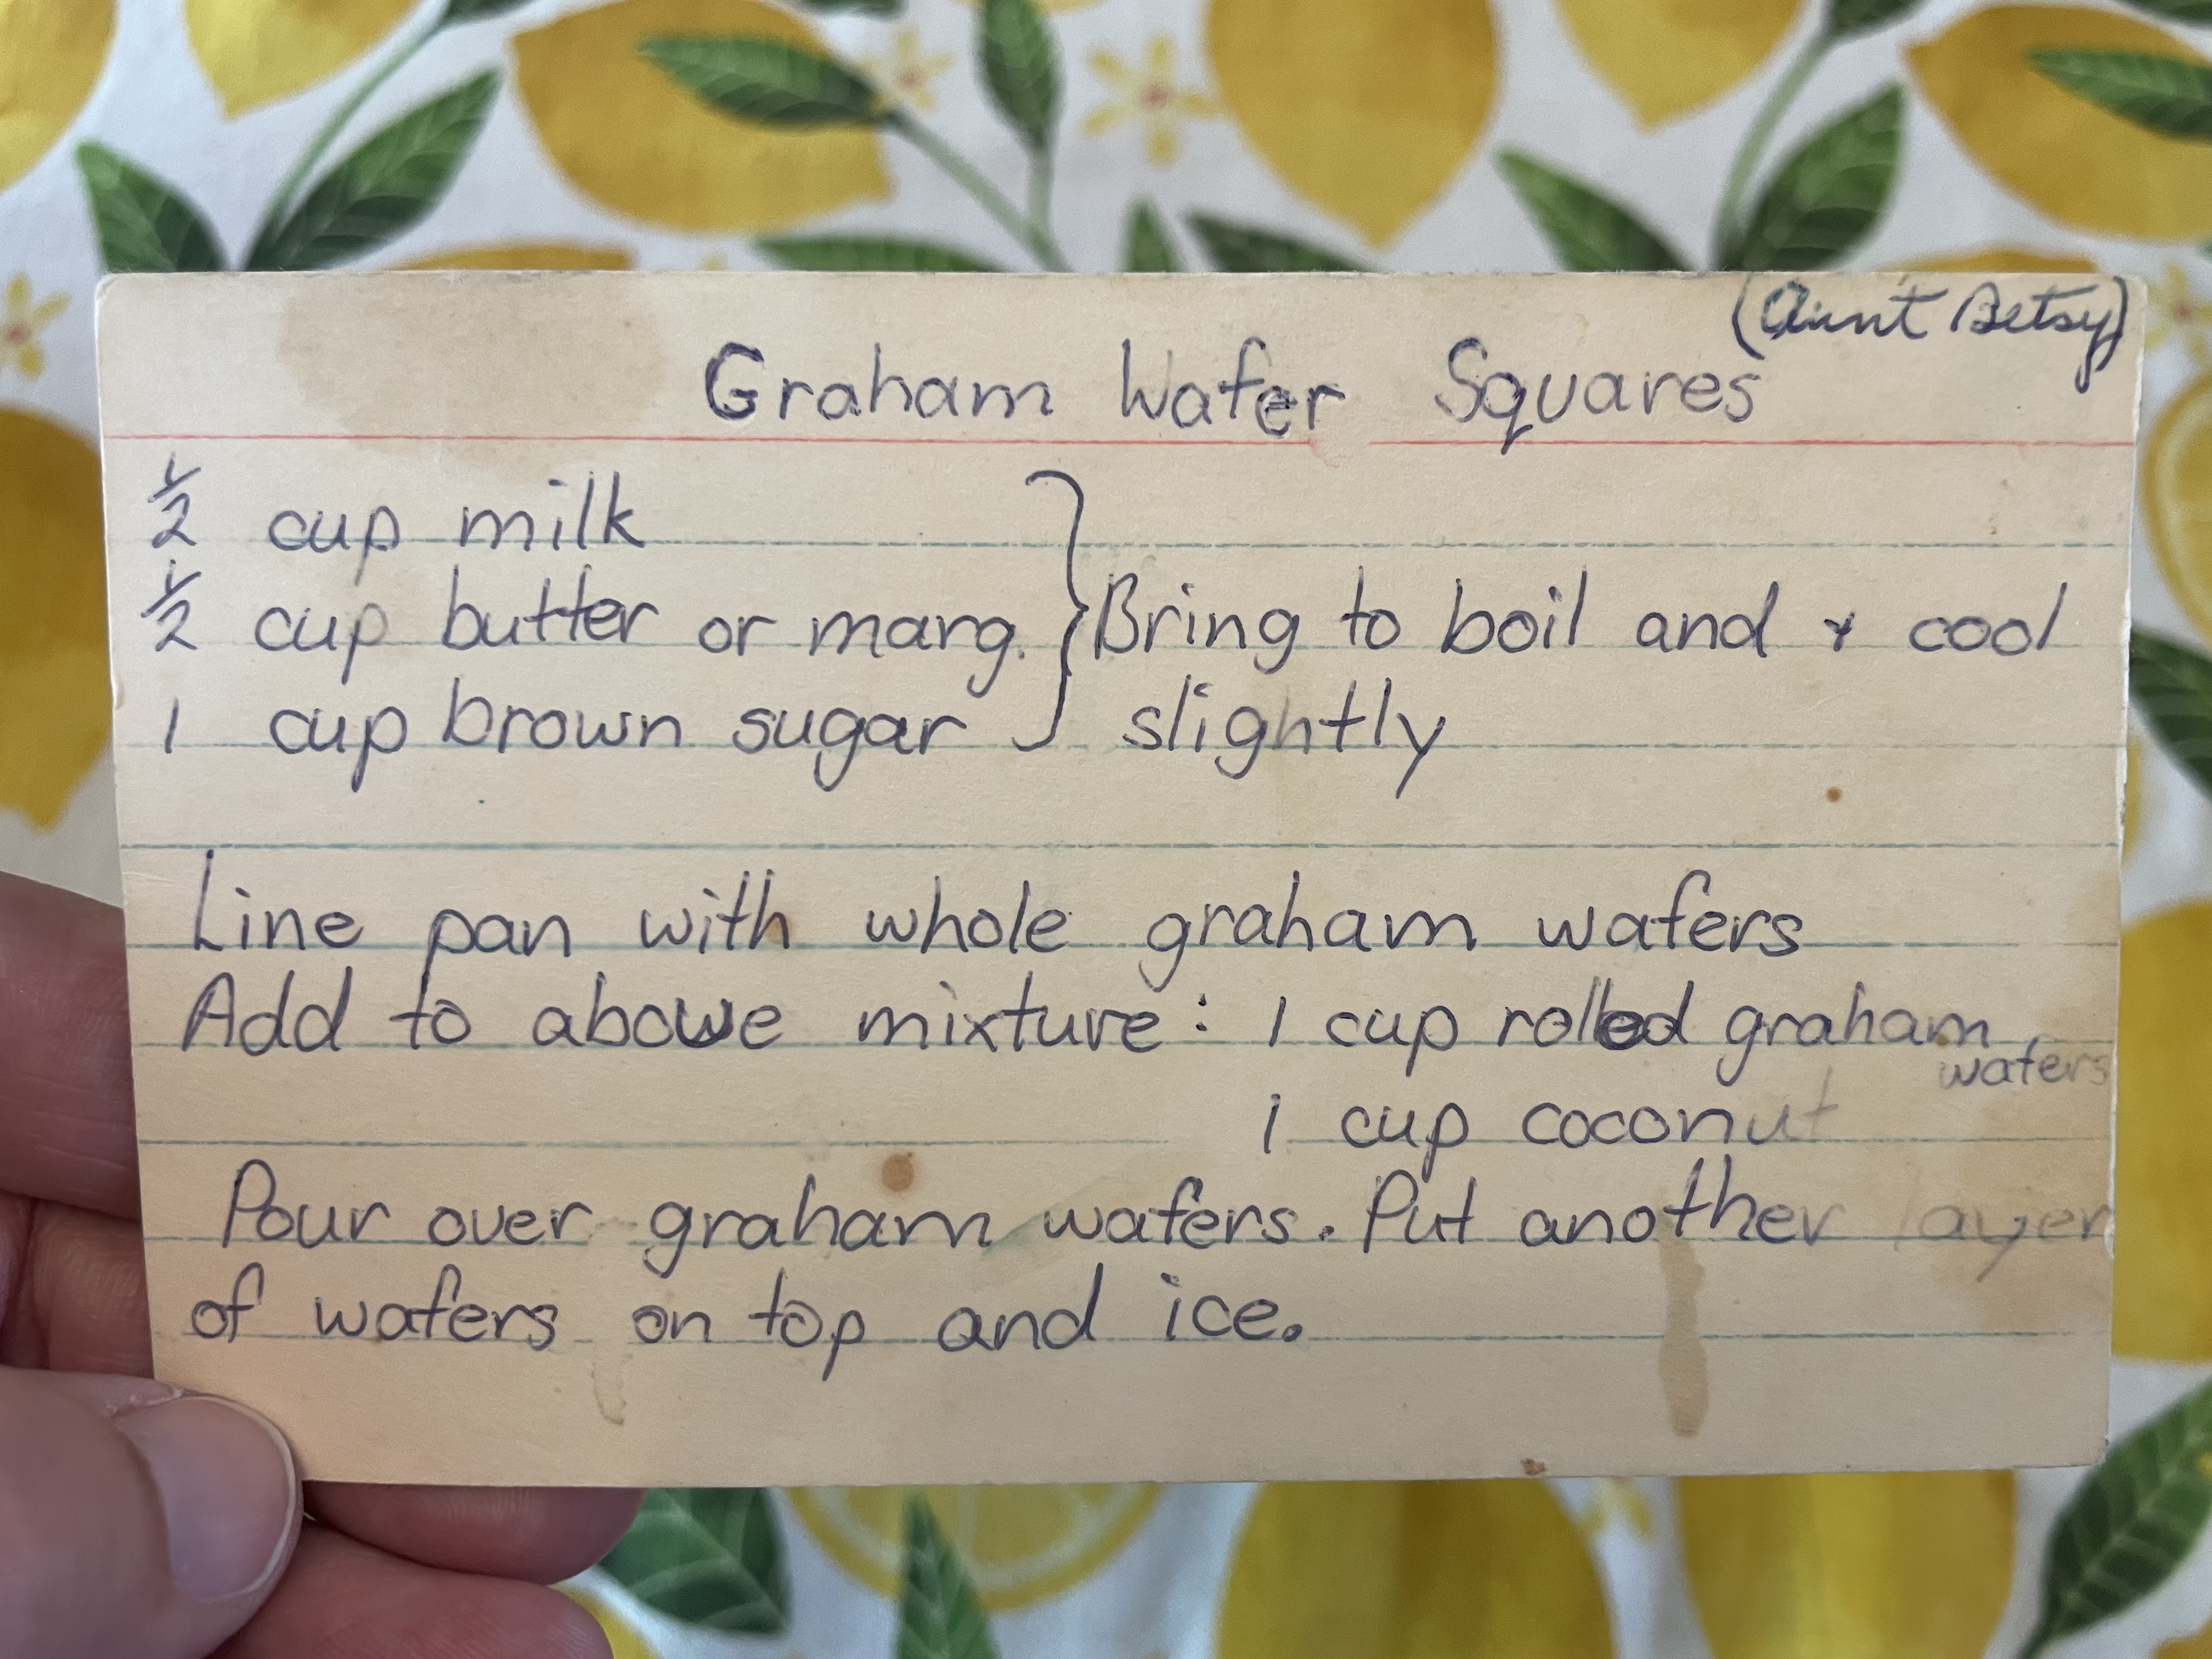 (Aunt Betsy)
Graham Wafer Squares
½ cup milk
½ cup butter or marg. } Bring to boil and & cool
1 cup brown sugar slightly
Line pan with whole graham wafers
Add to above mixture: 1 cup rolled graham
wafers
1 cup coconut
Pour over graham wafers. Put another layer
of wafers on top and ice.